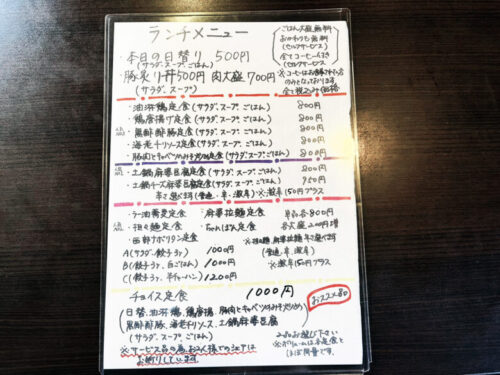 ランチメニュー
・本日の日替り 500円
(サラダ.スープ.ごはん)
・豚炙り丼500円 肉大盛700円
(サラダ.スープ)
ごはん大盛無料
おかわりも無料
(セルフサービス)
全てコーヒー付き
(セルフサービス)
のみとなっております。
全て税込み価格
・油淋鶏定食(サラダ.スープ.ごはん) 800円
・鶏唐揚げ定食(サラダ.スープ.ごはん) 800円
・黒酢酢豚定食(サラダ.スープ.ごはん) 800円
・海老チリソース定食(サラダ.スープ.ごはん) 800円
・豚肉とキャベツのみそ炒め定食(サラダ.スープ.ごはん) 800円
・土鍋麻婆豆腐定食(サラダ.スープ.ごはん) 800円
・土鍋チーズ麻婆豆腐定食(サラダ.スープ.ごはん) 950円
辛さ選べます(普通.辛.激辛)※激辛150円プラス
・ラー油蕎麦定食 ・麻婆拉麺定食 単品各800円
・担々麺定食 ・ちゃんぽん定食 各大盛200円増
・四郎ナポリタン定食
(普通.辛.激辛)
※激辛150円プラス
A(サラダ.餃子3ヶ) 1000円
B(餃子3ヶ.白ごはん) 1000円
C(餃子3ヶ.半チャーハン) 1200円
チョイス定食 1000円
おススメ!
(日替.油淋鶏.鶏唐揚.豚肉とキャベツのみそ炒め
黒酢酢豚.海老チリソース.土鍋麻婆豆腐)
(サラダ.スープ.ごはん)
2品お選び下さい
※ボリュームは各定食と
ほぼ同量です。
※サービス品の為、お2人様でのシェアは
お断りしています。